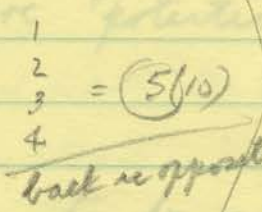 1
2
3 = 5(10)
4
back is opposit